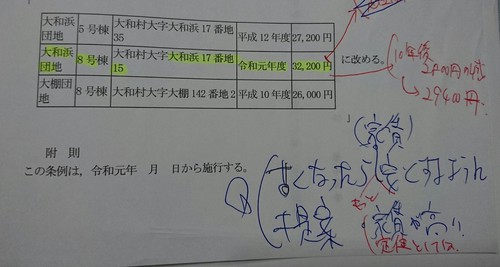 大和浜団地 5号棟 大和村大字大和浜 17 番地 35 平成 12 年度 27,200 円
大和浜団地 8号棟 大和村大字大和浜 17 番地 15 令和元年度 32,200 円
大棚団地 8号棟 大和村大字大棚 142 番地 2 平成 10 年度 26,000 円
に改める。
10年後
2800円の減
→ 29400円
」
附 則
この条例は，令和元年 月 日から施行する。
(家賃)
Q
提案
家賃が高い
定住としては